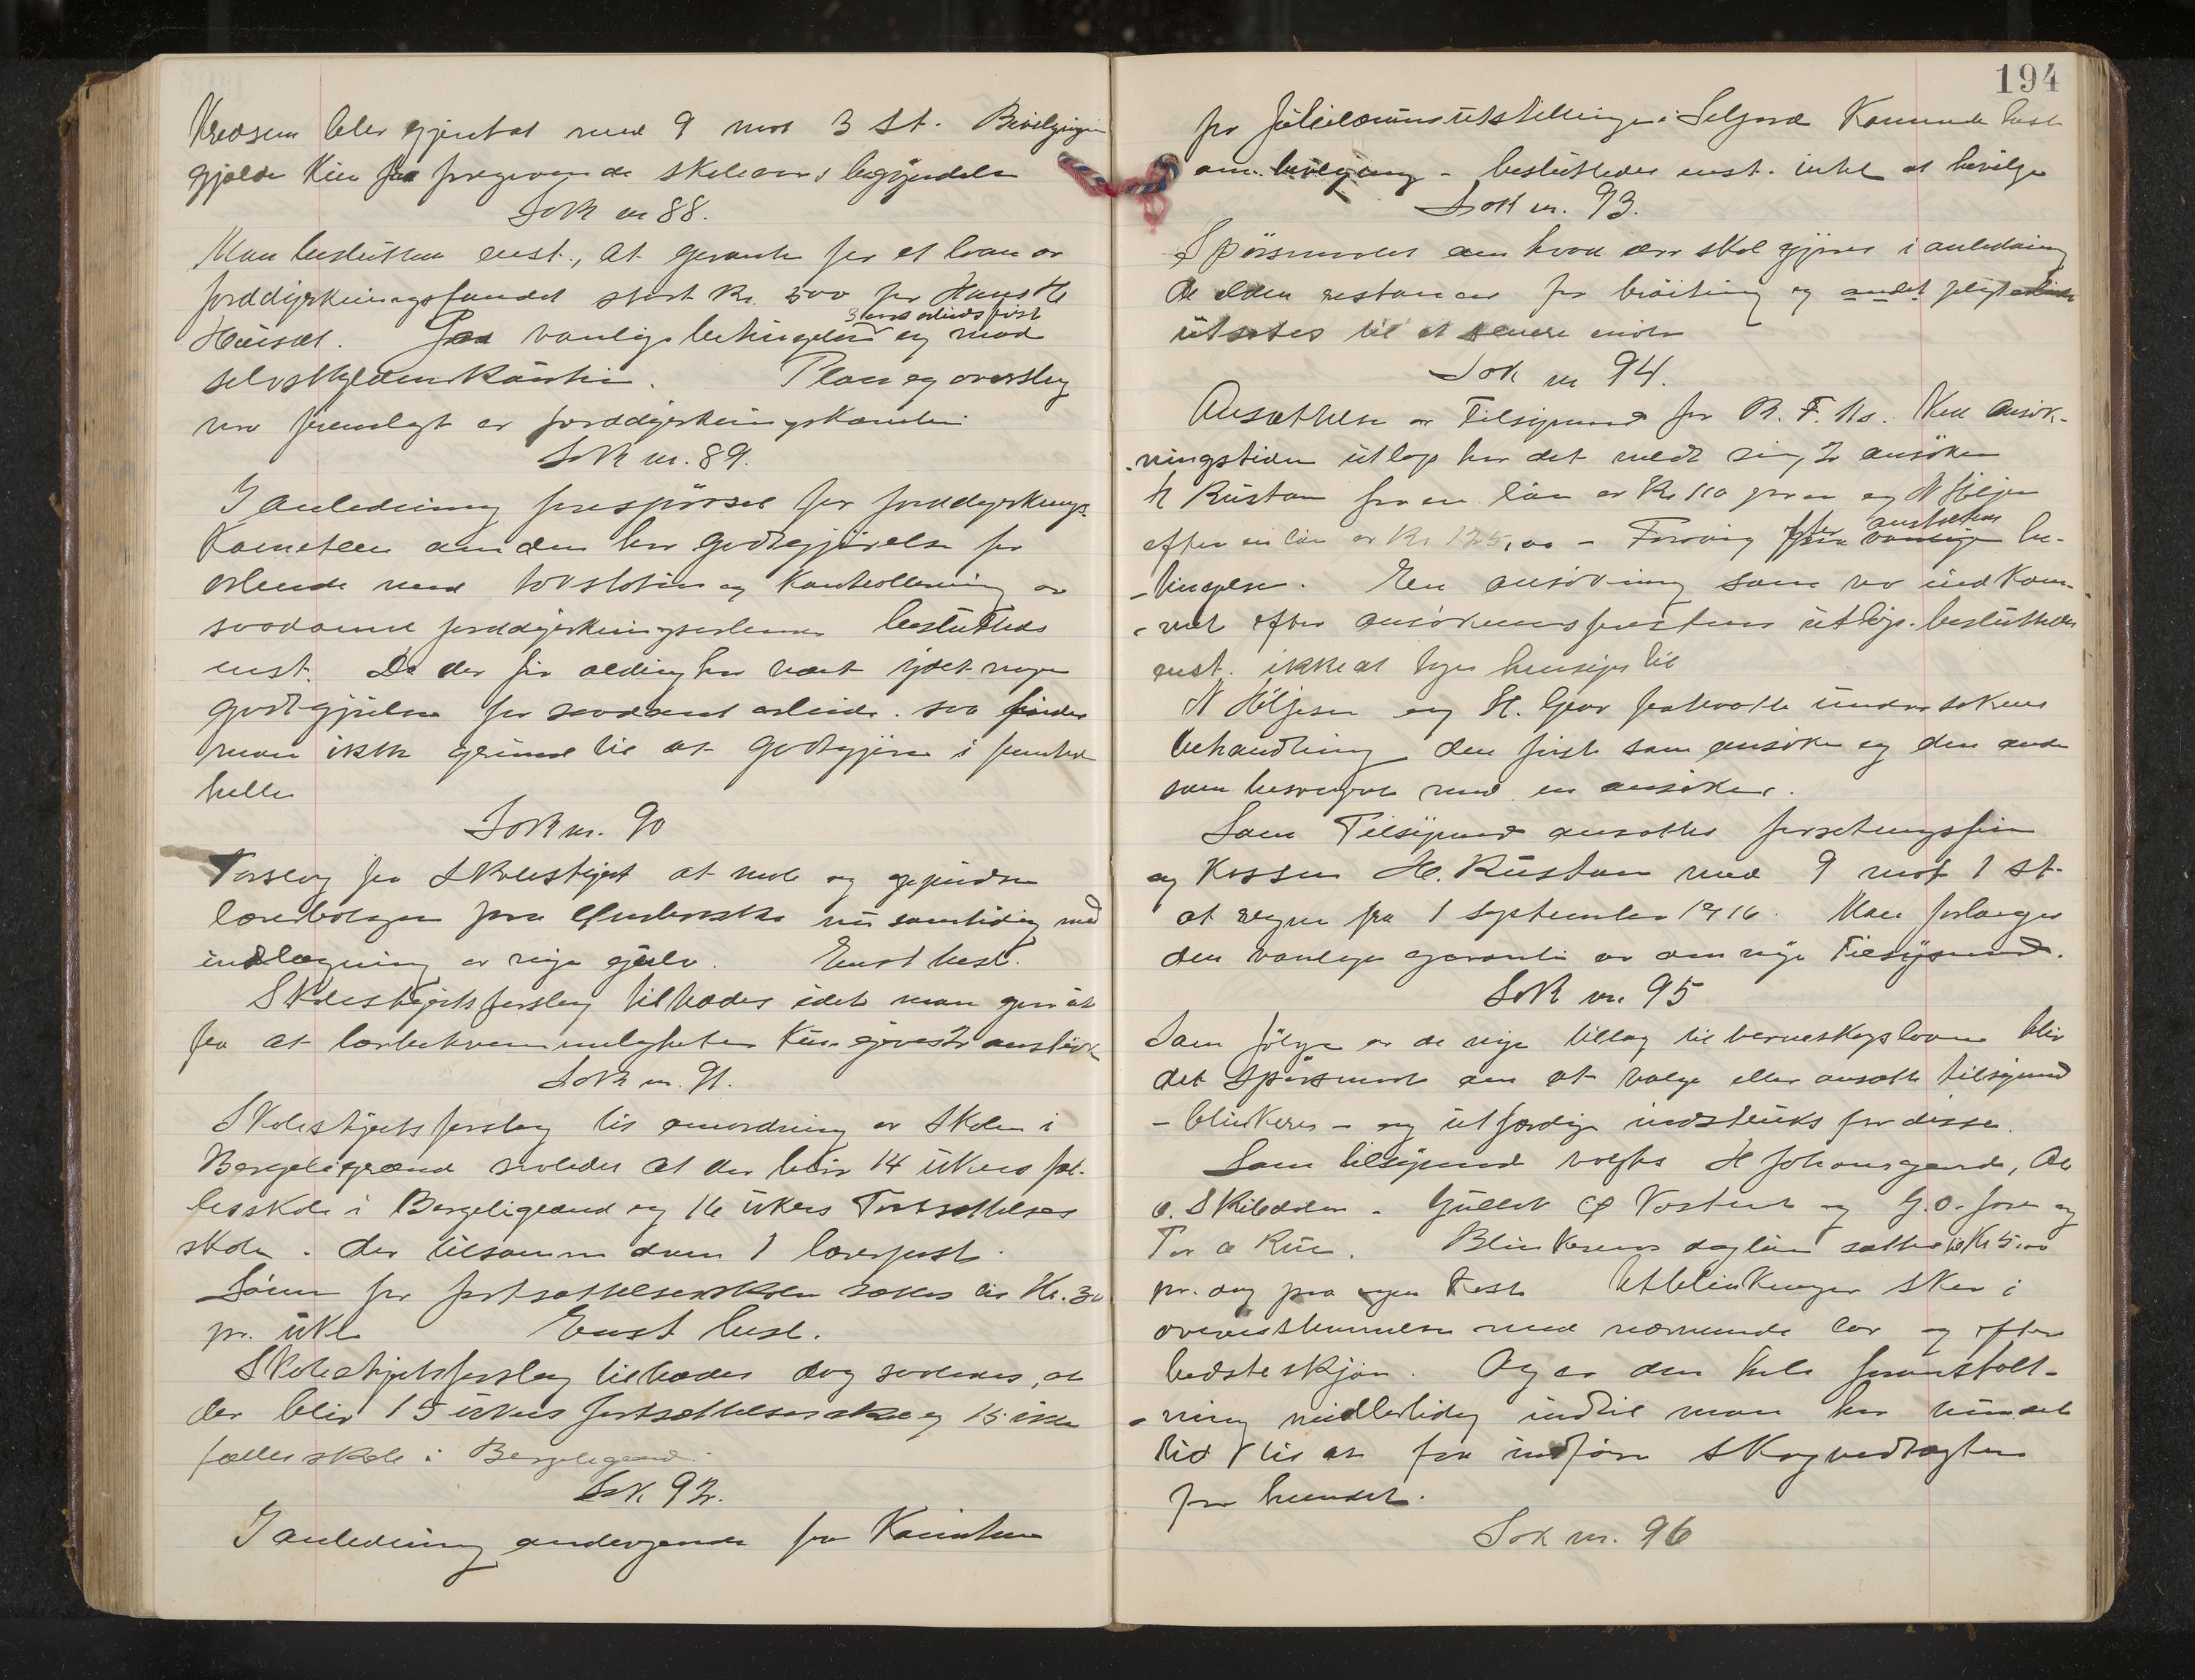 Kredsen blev gjentat med 9 mot 3 st. Bevilgningen
gjelder kun fra foregaaende skoleaars begyndelse
Sak nr 88.
Man besluttet enst., at garanti for et laan av
jorddyrkningsfondet stort kr. 500 for Hans H
3 aars avdragsfrist
Huset. Paa vanlige betingelser og mod
selvskyldnerkaution. Plan og overslag
var fremlagt av jorddyrkningskomiteen
Sak nr. 89.
I anledning forespørsel fra jorddyrknings-
komiteen om den har godtgjørelse for
arbeide med taksation og kontrollering av
saadanne jorddyrkningsarbeider besluttedes
enst. Da der før aldrig har vært ydet nogen
godtgjørelse for saadant arbeide. saa finder
man ikke grund til at godtgjøre i fremtiden
heller
Sak nr. 90
Forslag fra Skolestyret at male og
lærerboligen paa nu samtidig med
indlægning av nye gulv. Enst besl.
Skolestyrets forslag tiltrædes idet man gaar ut
fra at lærerbekvemmeligheten kun gives 2 anstrøk
Sak nr. 91.
Skolestyrets forslag til omordning av Skolen i
Bergeligrænd saaledes at der blir 14 ukers fæl-
lesskole i Bergeligrænd og 16 ukers Fortsættelses
skole. der tilsammen danner 1 lærerpost.
Lønn for fortsættelsesskolen sættes til Kr. 30
pr. uke Enst besl.
Skolestyrets forslag tiltrædes dog saaledes, at
der blir 15 ukers fortsættelsesskole og 15 ukers
fælles skole i Bergeligrænd.
Sak 92.
I anledning andragende fra Komiteen
194
for Jubilæumsutstillingen i Seljord Kommende høst
om bevilgning - besluttedes enst. intet at bevilge
Sak nr. 93.
Spørsmaalet om hvad der skal gjøres i anledning
de eldre restancer for brøiting og andet pligtarbeide
utsettes til et senere møte
Sak nr 94.
Ansættelse av Tilsynsmand for R. F. Ved Ansøk-
-ningstiden utløp har det meldt sig 2 ansøkere
H Rustan for en løn av Kr 110 pr aar og N Høljesen
efter en løn av Kr 125,00 - Forøvrig efter be-
-tingelser. En ansøkning som var indkom-
-met efter ansøkningsfristens utløp. besluttedes
enst. ikke at tages hensyn til
N Høljesen og H. fratraatte under sakens
behandling den første som ansøker og den anden
som besvogret med en ansøker.
Som Tilsynsmand ansattes forsetningsfrie
og H. Rustan med 9 mot 1 st.
at regne fra 1 September 1916. Man forlanger
den vanlige garanti av den nye Tilsynsmand.
Sak nr. 95
Som følge av de nye tillæg til verneskogloven blir
det Spørsmaal om at vælge eller ansætte tilsynsmænd
- blinkere - og utfærdige instruks for disse.
Som tilsynsmænd valgtes H Johannesgaarde, Ol
O. Skibdalen - Gullik Vostveit og G. O. og
Tor O Rui. Blinkerens dagløn sættes til Kr 5,00
pr. dag paa egen kost Utblinkninger sker i
overensstemmelse med nærværende lov og efter
bedste skjøn. Og er den hele foranstalt-
-ning midlertidig indtil man har vundet
tid til at faa indføre Skogvedtægter
for herredet.
Sak nr. 96